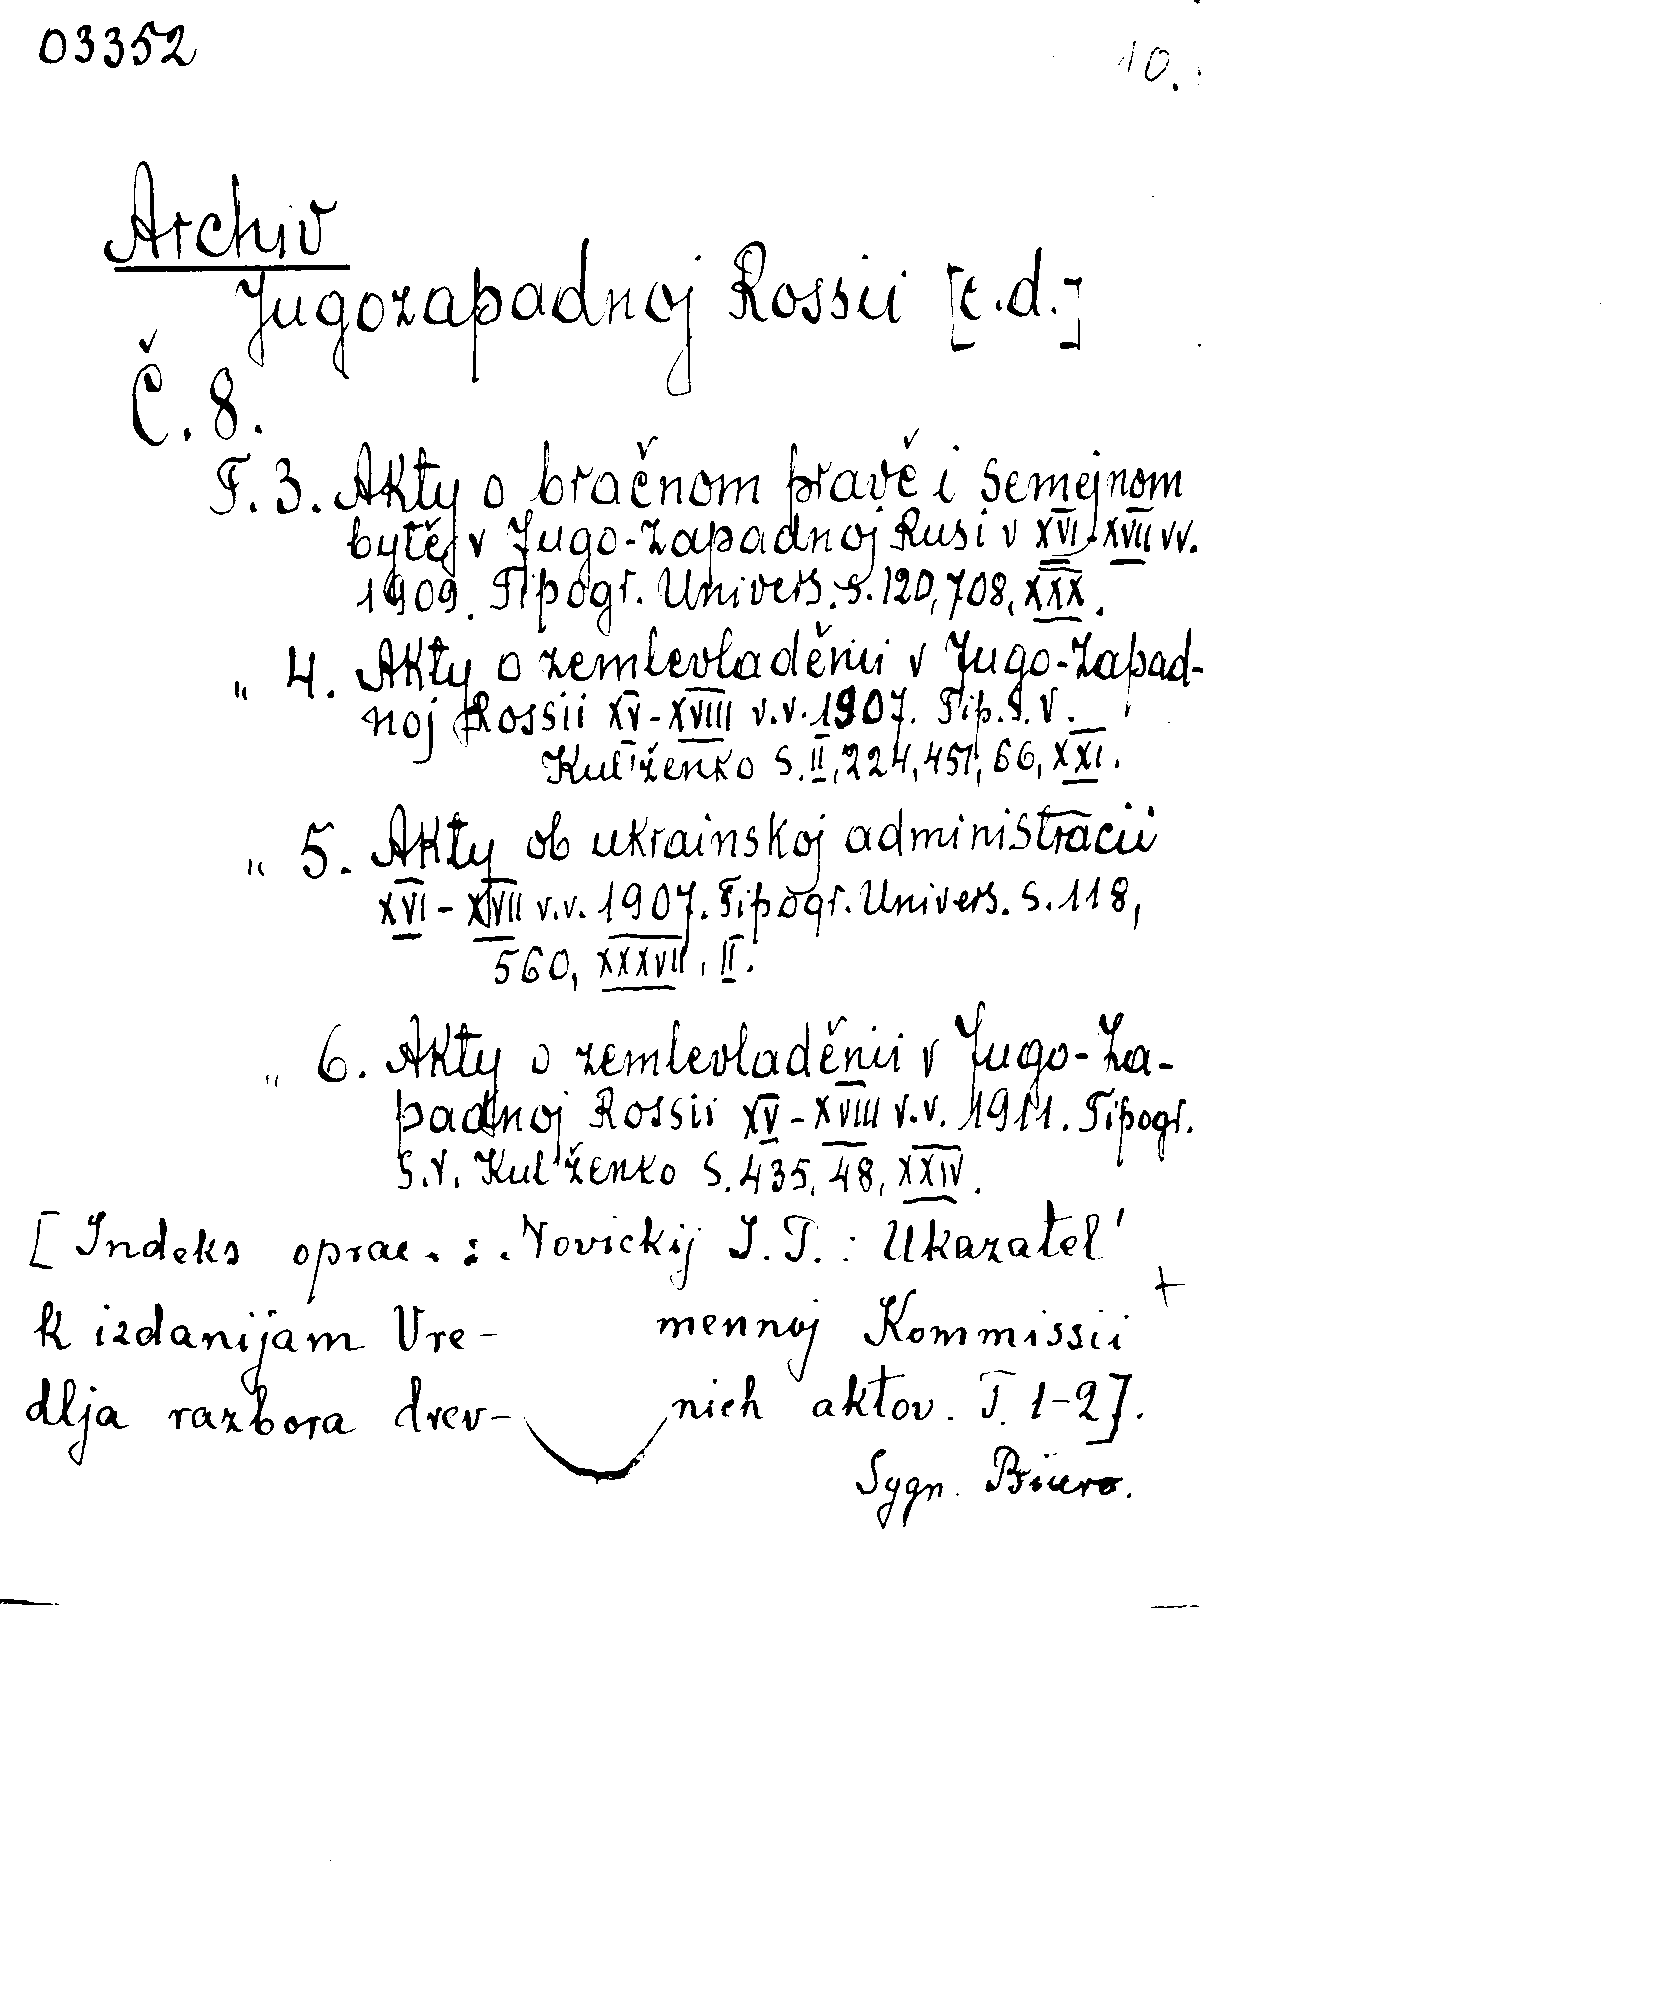 03352
10.
Archiv
Jugozapadnoj Rossii [c.d.]
Č. 8.
T. 3. Akty o bračnom pravě i semejnom
bytě v Jugo-Zapadnoj Rusi v XVI-XVII vv.
1909. Tipogr. Univers. s. 120, 708, XXX.
" 4. Akty o zemlevladěnii v Jugo-Zapad-
noj Rossii XV-XVIII v.v. 1907. Tip. S. V.
Kul'ženko S. II, 224, 451, 66, XXI.
" 5. Akty ob ukrainskoj administracii
XVI-XVII v.v. 1907. Tipogr. Univers. S. 118,
560, XXXVII, II.
" 6. Akty o zemlevladěnii v Jugo-Za-
padnoj Rossii XV-XVIII v.v. 1911. Tipogr.
S.V. Kul'ženko S. 435, 48, XXIV.
[Indeks oprac. : Novickij I. P. : Ukazatel'
k izdanijam Vre- mennoj Kommissii +
dlja razbora drev- nich aktov. T. 1-2].
Sygn. Biuro.